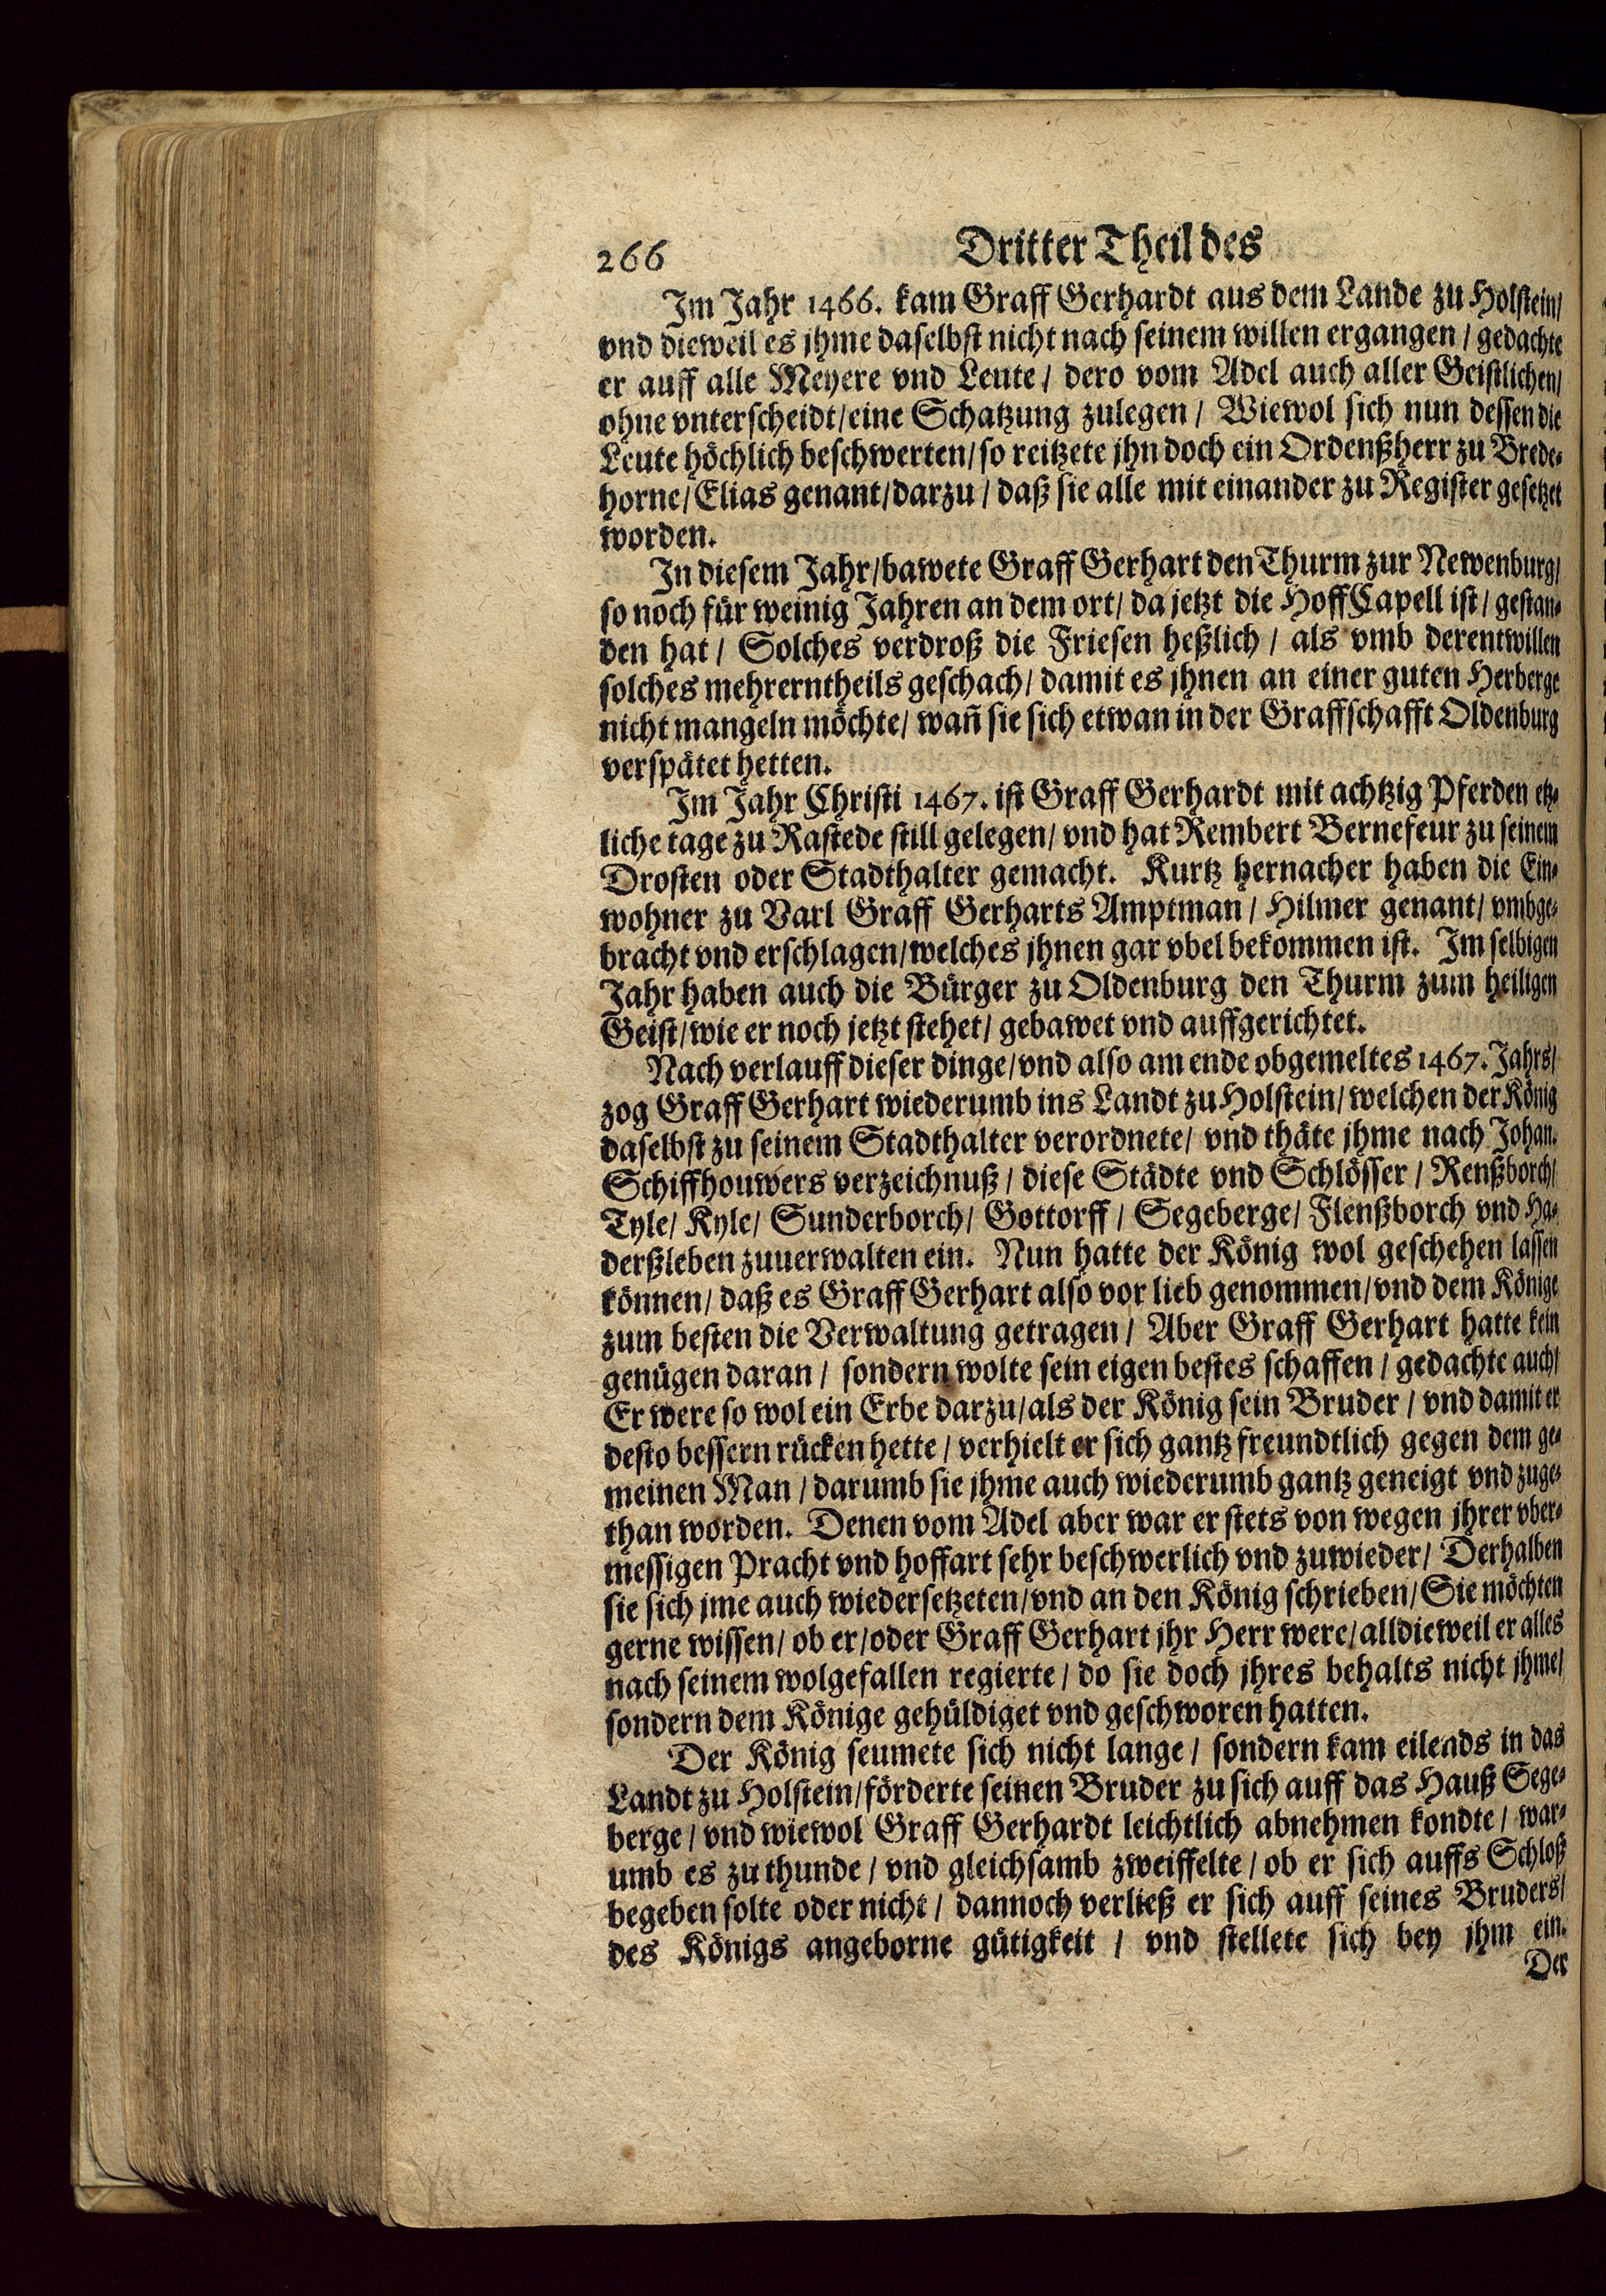 266 Dritter Theil des
Im Jahr 1466. kam Graff Gerhardt aus dem Lande zu Holstein/
vnd dieweil es jhme daselbst nicht nach seinem willen ergangen / gedachte
er auff alle Meyere vnd Leute / dero vom Adel auch aller Geistlichen/
ohne vnterscheidt/eine Schatzung zulegen / Wiewol sich nun dessen die
Leute höchlich beschwerten/so reitzete jhn doch ein Ordenßherr zu Brede-
horne/Elias genant/darzu / daß sie alle mit einander zu Register gesetzet
worden.
In diesem Jahr/bawete Graff Gerhart den Thurm zur Newenburg/
so noch für weinig Jahren an dem ort/ da jetzt die HoffCapell ist / gestan-
den hat / Solches verdroß die Friesen heßlich / als vmb derentwillen
solches mehrerntheils geschach/ damit es jhnen an einer guten Herberge
nicht mangeln möchte/ wañ sie sich etwan in der Graffschafft Oldenburg
verspätet hetten.
Im Jahr Christi 1467. ist Graff Gerhardt mit achtzig Pferden etz-
liche tage zu Rastede still gelegen/ vnd hat Rembert Bernefeur zu seinem
Drosten oder Stadthalter gemacht. Kurtz hernacher haben die Ein-
wohner zu Varl Graff Gerharts Amptman / Hilmer genant/ vmbge-
bracht vnd erschlagen/welches jhnen gar vbel bekommen ist. Im selbigen
Jahr haben auch die Bürger zu Oldenburg den Thurm zum heiligen
Geist/wie er noch jetzt stehet/ gebawet vnd auffgerichtet.
Nach verlauff dieser dinge/vnd also am ende obgemeltes 1467. Jahrs/
zog Graff Gerhart wiederumb ins Landt zu Holstein/welchen der König
daselbst zu seinem Stadthalter verordnete/ vnd thäte jhme nach Johan.
Schiffhouwers verzeichnuß / diese Städte vnd Schlösser / Renßborch/
Tyle/ Kyle/ Sunderborch/ Gottorff / Segeberge/ Flenßborch vnd Ha-
derßleben zuuerwalten ein. Nun hatte der König wol geschehen lassen
können/ daß es Graff Gerhart also vor lieb genommen/vnd dem Könige
zum besten die Verwaltung getragen / Aber Graff Gerhart hatte kein
genügen daran / sondern wolte sein eigen bestes schaffen / gedachte auch/
Er were so wol ein Erbe darzu/als der König sein Bruder / vnd damit er
desto bessern rücken hette / verhielt er sich gantz freundtlich gegen dem ge-
meinen Man / darumb sie jhme auch wiederumb gantz geneigt vnd zuge-
than worden. Denen vom Adel aber war er stets von wegen jhrer vber-
messigen Pracht vnd hoffart sehr beschwerlich vnd zuwieder/ Derhalben
sie sich jme auch wiedersetzeten/vnd an den König schrieben/Sie möchten
gerne wissen/ ob er/oder Graff Gerhart jhr Herr were/alldieweil er alles
nach seinem wolgefallen regierte / do sie doch jhres behalts nicht jhme/
sondern dem Könige gehüldiget vnd geschworen hatten.
Der König seumete sich nicht lange / sondern kam eilends in das
Landt zu Holstein/förderte seinen Bruder zu sich auff das Hauß Sege-
berge / vnd wiewol Graff Gerhardt leichtlich abnehmen kondte / war-
umb es zu thunde / vnd gleichsamb zweiffelte / ob er sich auffs Schloß
begeben solte oder nicht / dannoch verließ er sich auff seines Bruders/
des Königs angeborne gütigkeit / vnd stellete sich bey jhm ein.
Der